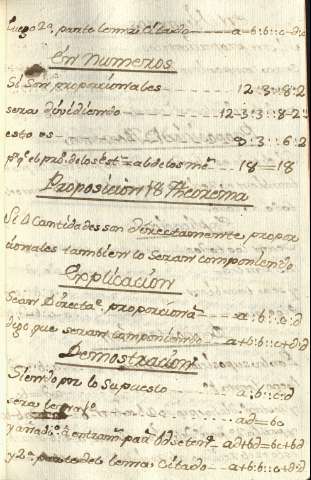 luego 2ª parte lema citado — a-b:b::c-d:d
En numeros
Si son proporcionales — 12·3::8·2
sera dividiendo — 12-3·3::8-2·
esto es — 9·3::6·2
18—18
Proposicion 18 Theorema
Si 4 Cantidades son directamente propor
cionales tambien lo seran componiendo
Explicacion
Sean Directaᵉ proporcionaˢ — a:b::c:d
digo que seran componiendo — a+b:b::c+d:d
Demostracion
Siendo por lo supuesto — a:b::c:d
sera — ad=bc
y añadᵈᵒ á entramˢ parˢ bd setenᵉ ad+bd=bc+bd
y 2ª parte del lema citado — a+b:b::c+d:d